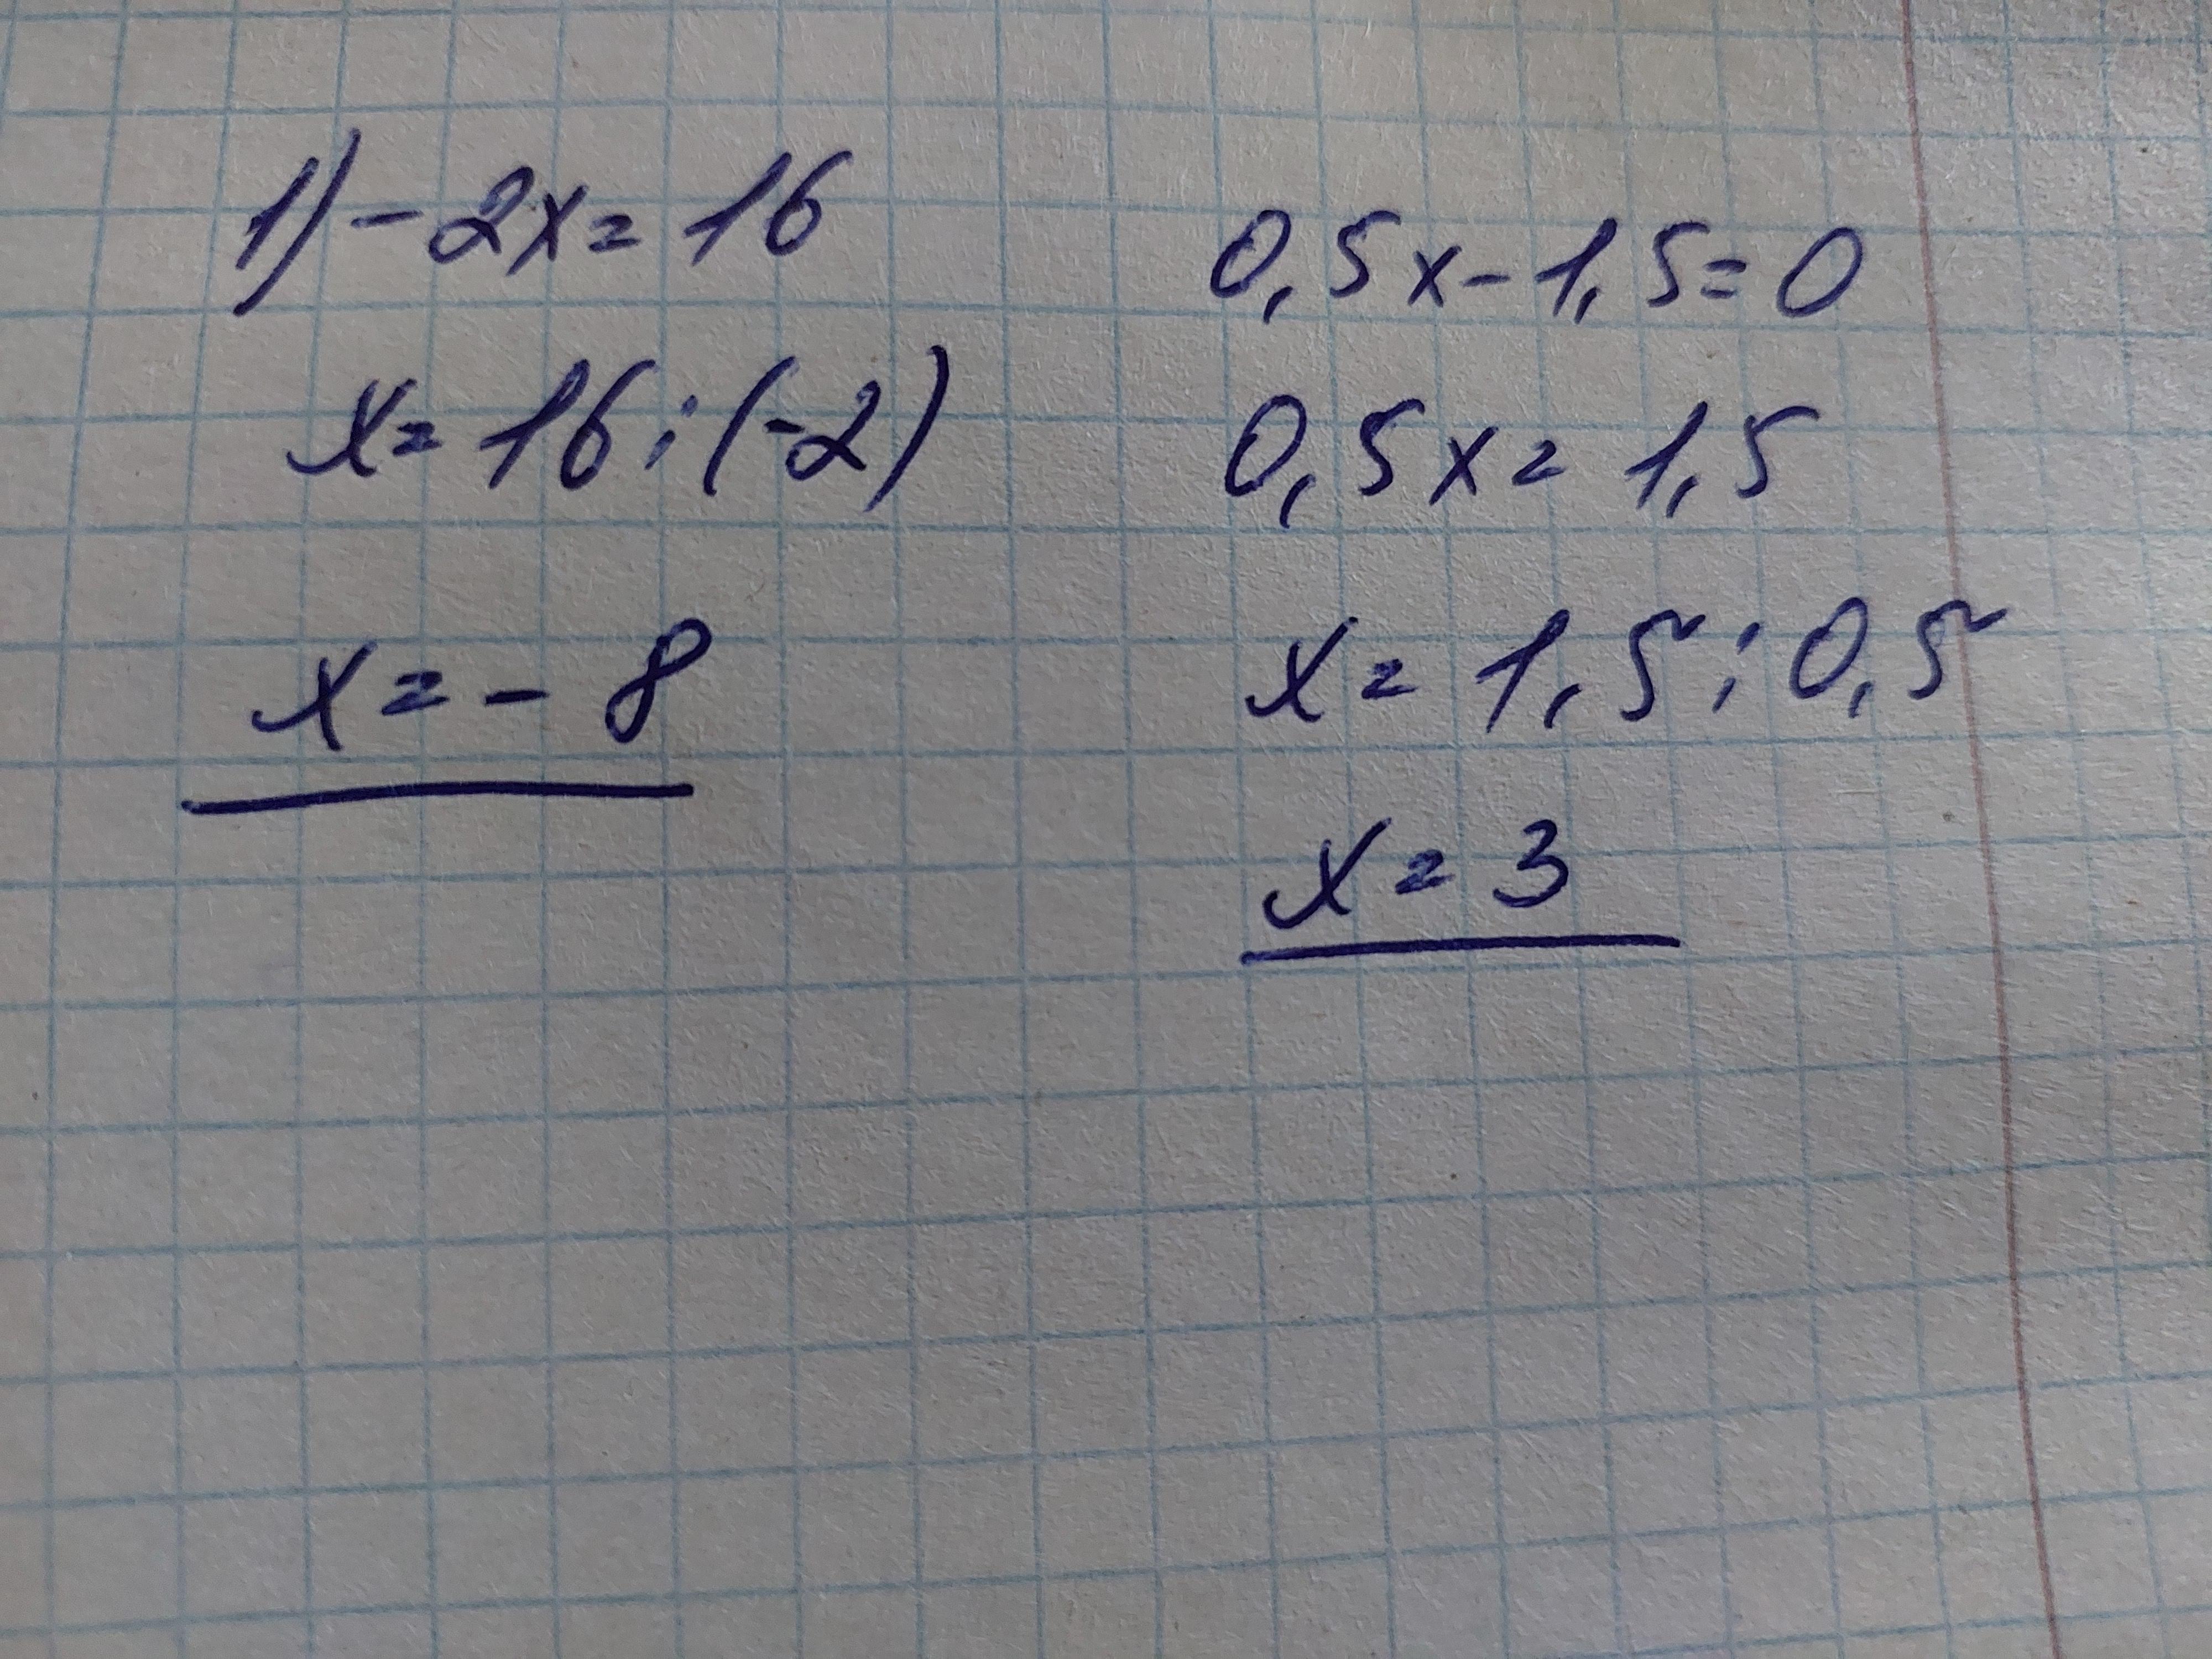 1) -2x=16
x=16:(-2)
x=-8
0,5x-1,5=0
0,5x=1,5
x=1,5:0,5
x=3